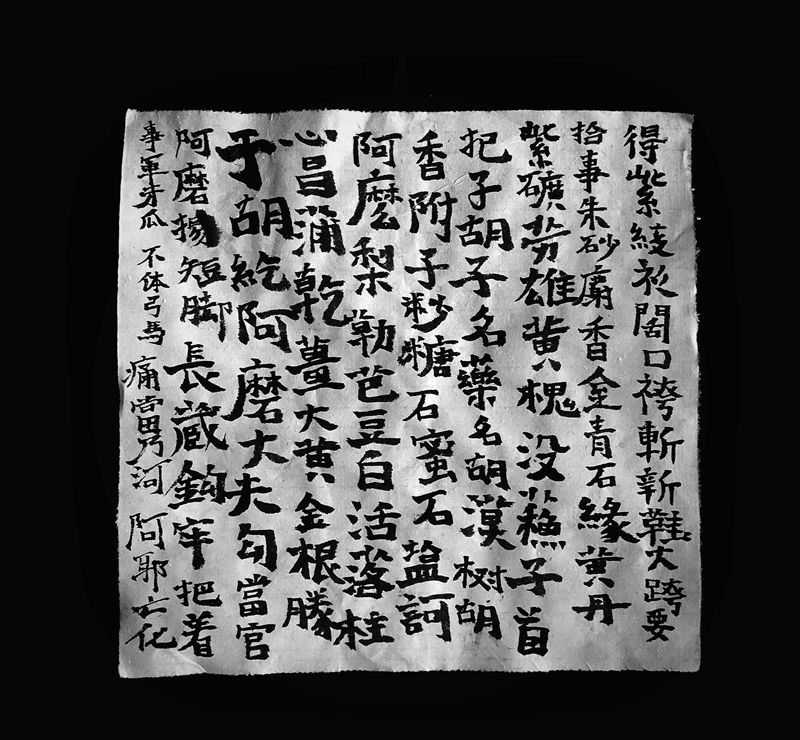 得紫綾衫闊口袴斬新鞋大跨要
拾事朱砂麝香金青石緣黃丹
紫礦芳雄黃槐没蘓子首
把子胡子名藥名胡漠树胡
香附子粆糖石蜜石塩訶
阿麼梨勒芭豆白活落桂
心昌蒲乾薑大黃金根勝
于胡紇阿磨大夫勾當官
阿磨據短脚長藏鉤牢把着
事軍牙瓜不体弓馬痛當男河阿耶亡化